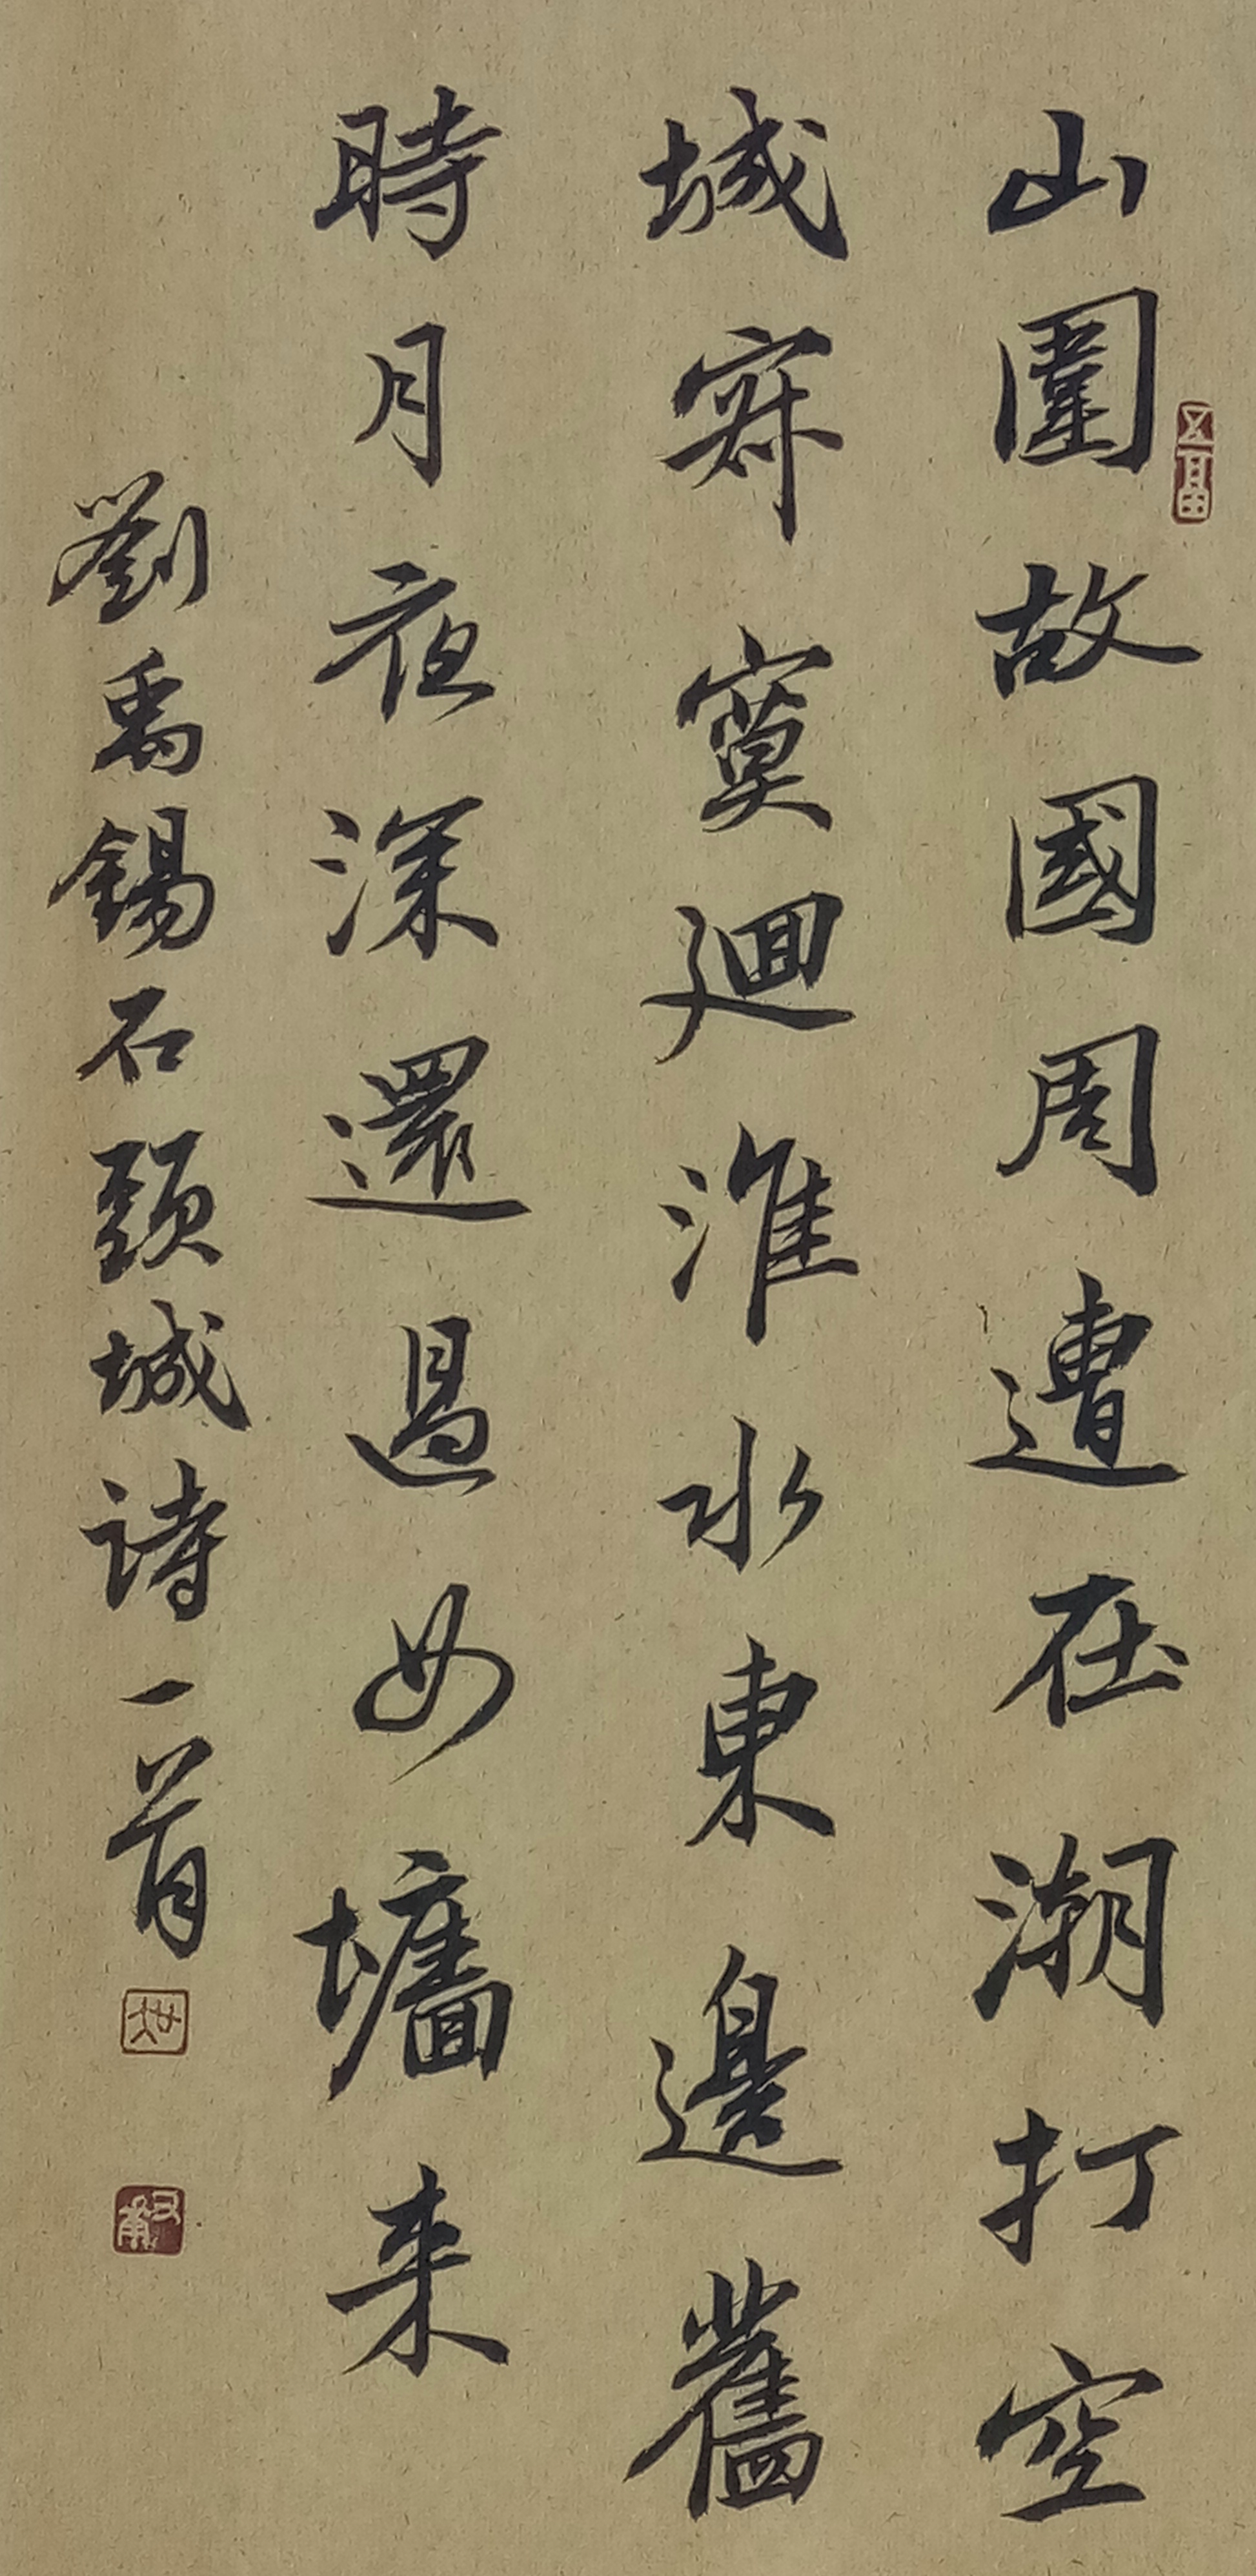 山圍故國周遭在潮打空
城寂寞迴淮水東邊舊
時月夜深還過女墻来
劉禹錫石頭城詩一首